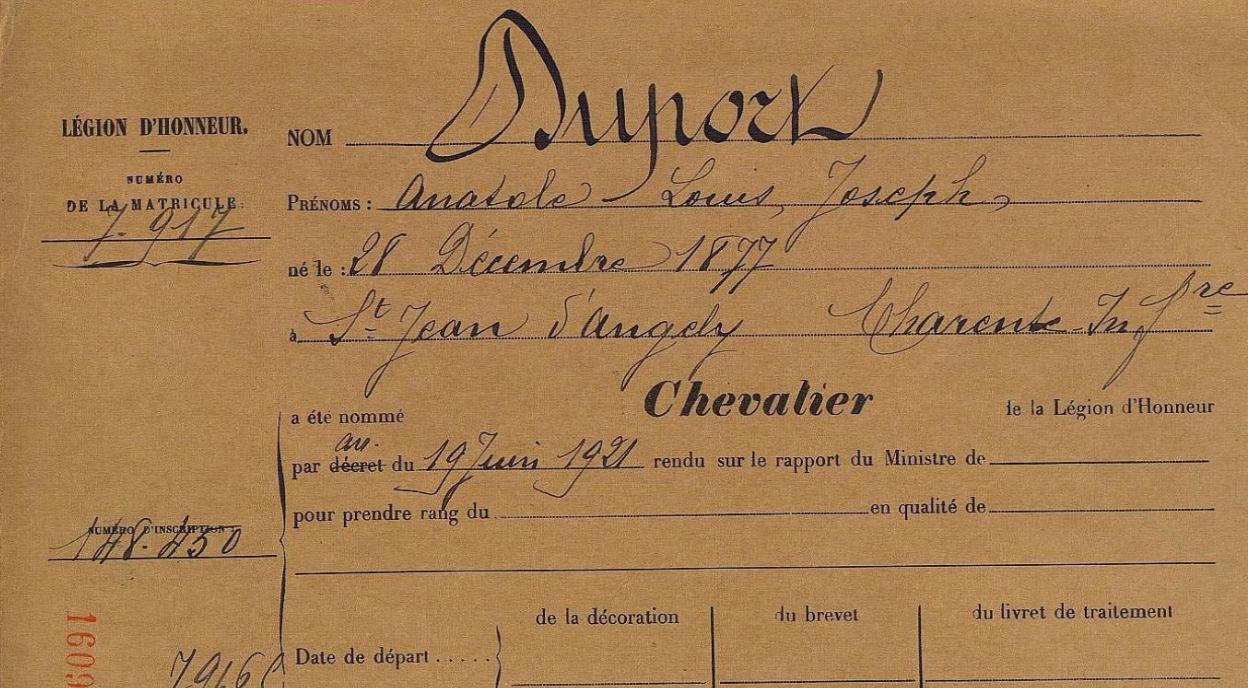 LÉGION D'HONNEUR.
NUMÉRO
DE LA MATRICULE:
7.917
NOM Duport
PRÉNOMS: Anatole Louis, Joseph,
né le: 28 Décembre 1877
à St Jean d'Angely Charente Infre
a été nommé Chevalier de la Légion d'Honneur
arr.
par décret du 19 Juin 1921 rendu sur le rapport du Ministre de
pour prendre rang du en qualité de
NUMÉRO D'INSCRIPTION:
148.450
de la décoration du brevet du livret de traitement
Date de départ.....
1609